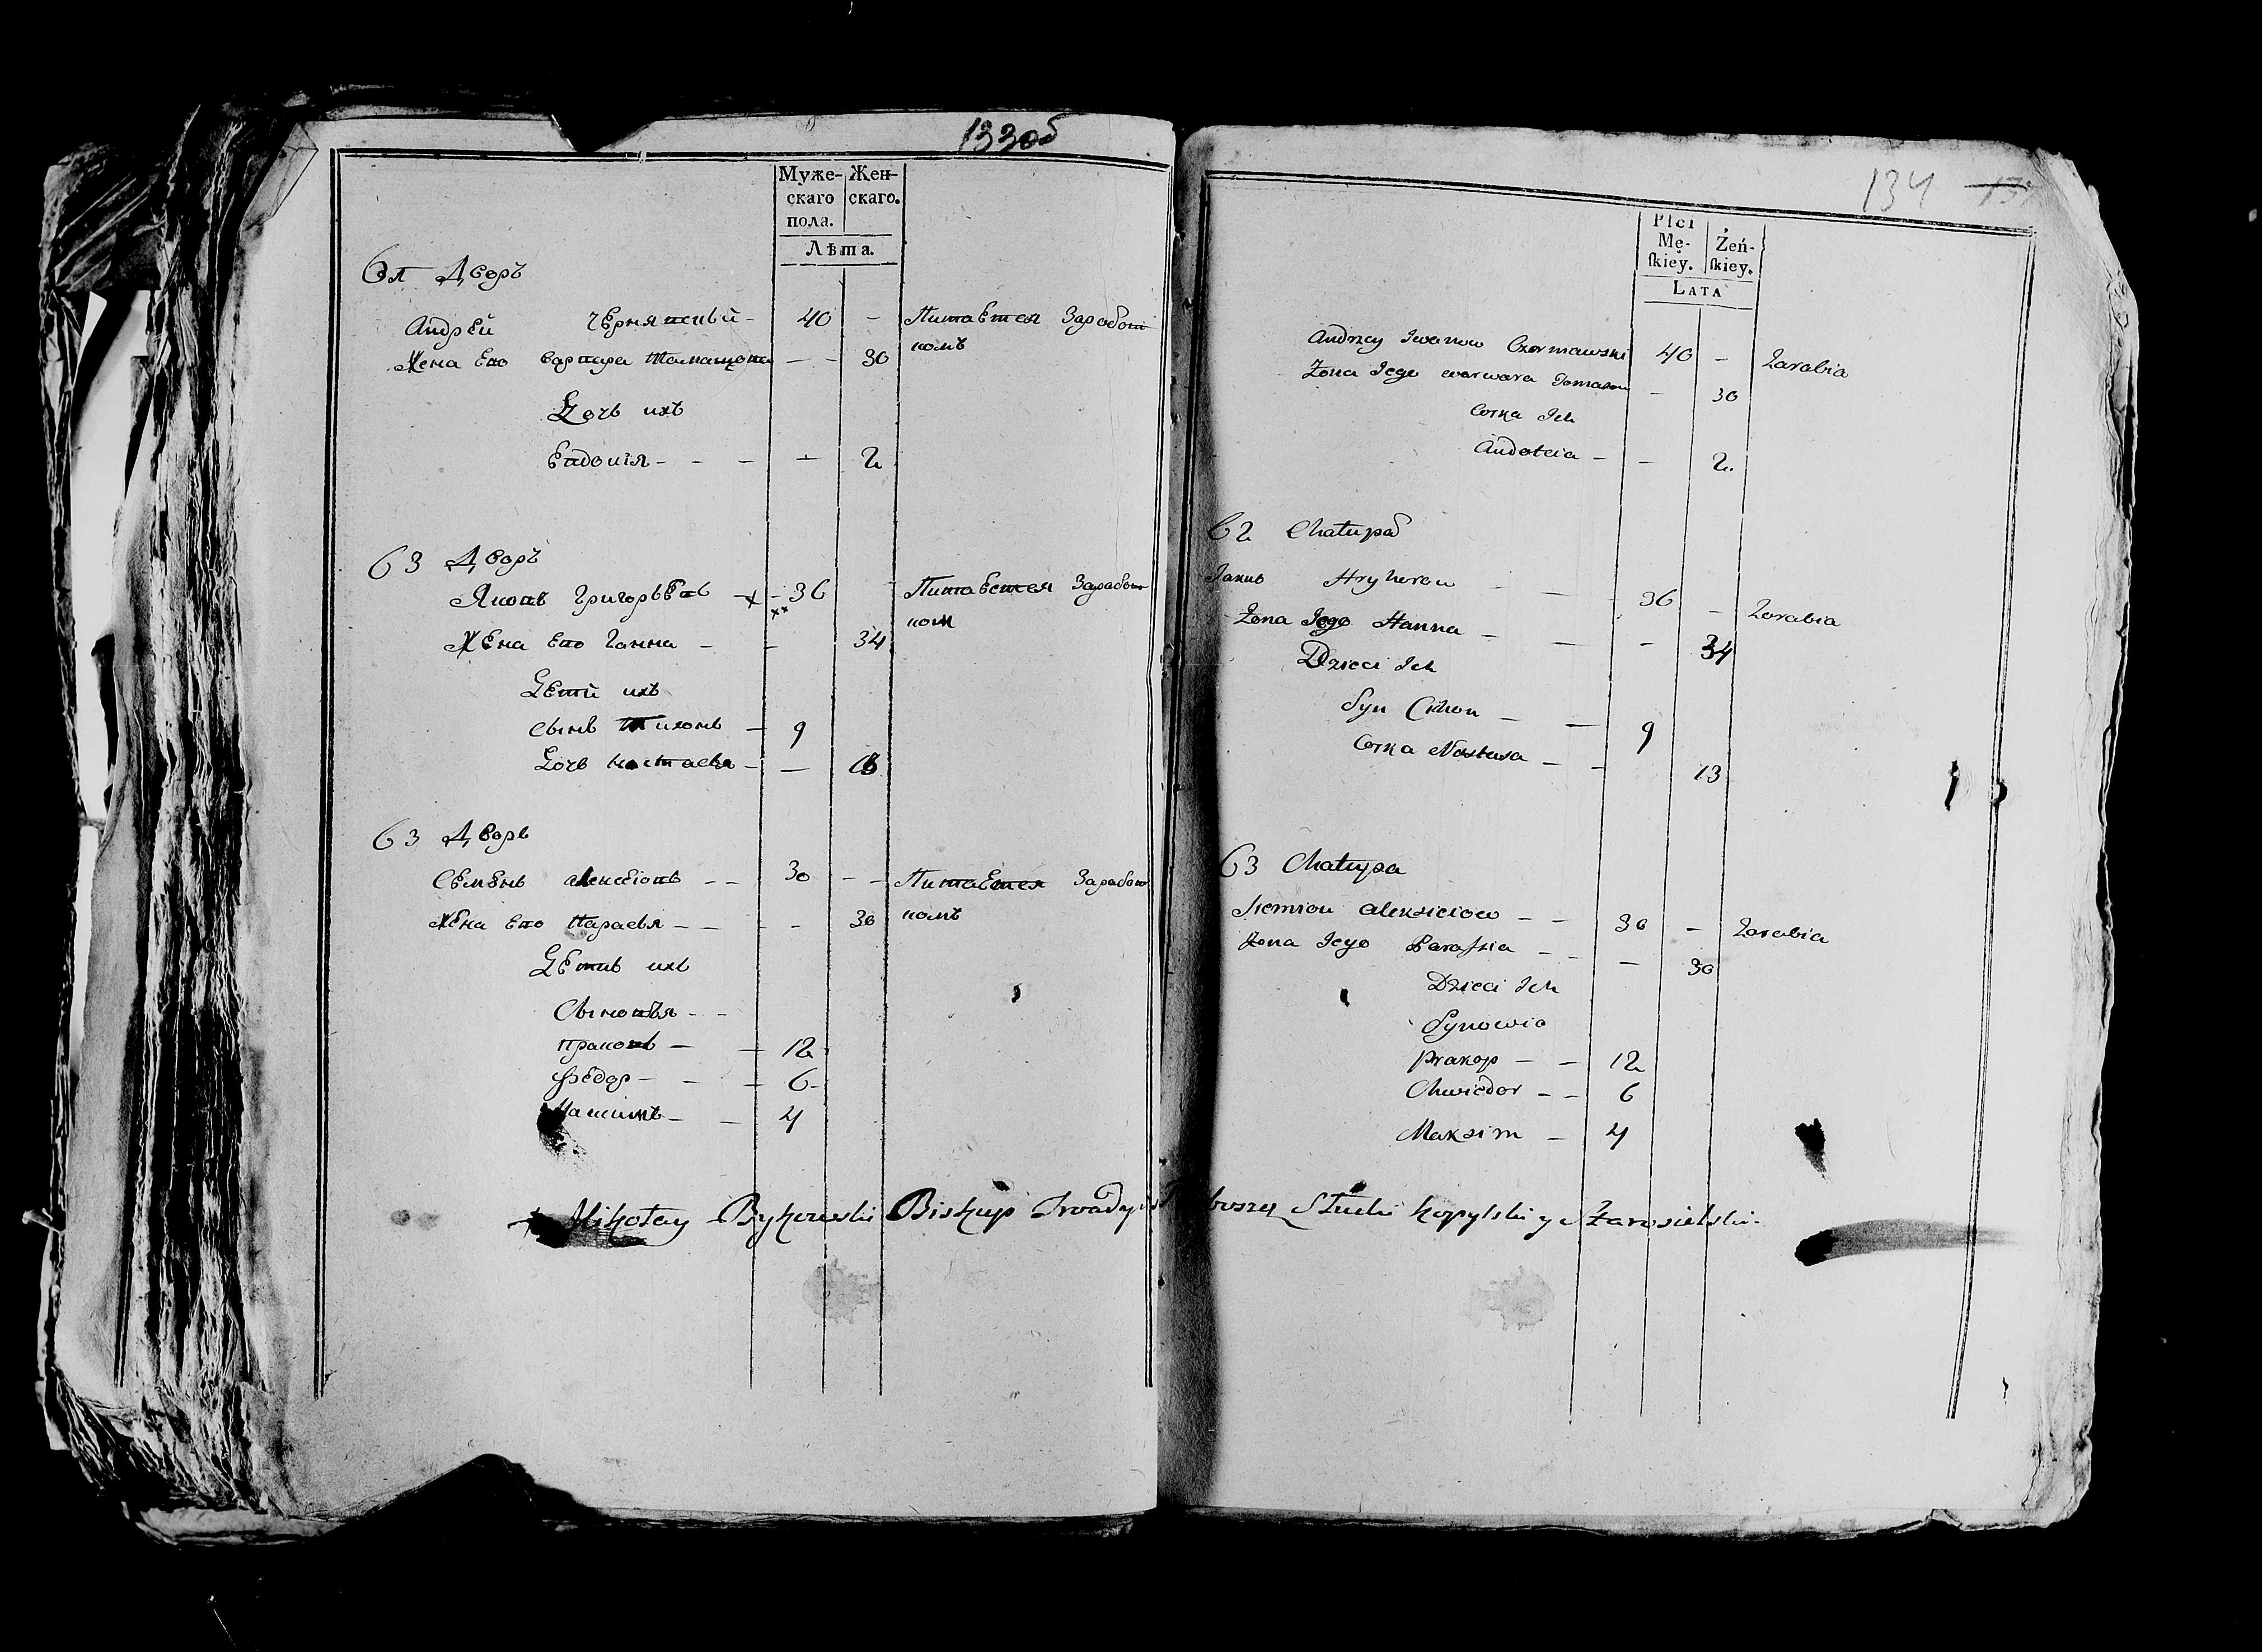 133об
Муже-
скаго
пола.
Жен-
скаго.
Лѣта.
Дворъ
Андрей Чернявскый - 40 - Питается Заработ
комъ
Жена Его Варвара - - 30
Дочь ихъ
Евдокія - - - - 2
63 Дворъ
Яковъ Григорьевъ - 36 Питается Заработ
ком
Жена Его Ганна - - 34
Дети ихъ
Сынъ Тихонъ - 9
Дочь - -
63 Дворъ
Семѣнъ Алексѣіовъ - - 30 - - Питается Заработ
комъ
Жена Его Парасья - - - 30
Дети ихъ
Сыновья - -
Пракопъ - - 12
Федор - - - 6 -
Максимъ - - 4
134
Płci
Mę-
ſkiey.
Żeń-
ſkiey.
LATA
Andrzey Iwanow Czerniawski 40 - Zarabia
Żona Iego Warwara Tomaszow - 30
Corka Ich
Audotcia - - 2
62 Chałupa
Jakub Hryhorow - - 36 - Zarabia
Żona Iego Hanna - - - 34
Dzieci Ich
Syn Cihon - - 9
Corka Nastusia - - 13
63 Chałupa
Siemion Alexieiow - - 30 - Zarabia
Żona Iego Paraſkia - - - 30
Dzieci Ich
Synowie
Prakop - - 12
Chwiedor - - 6
Maksim - 4
Mikołay Bykowski Biskup Słucki Kopylski y Starosielski.